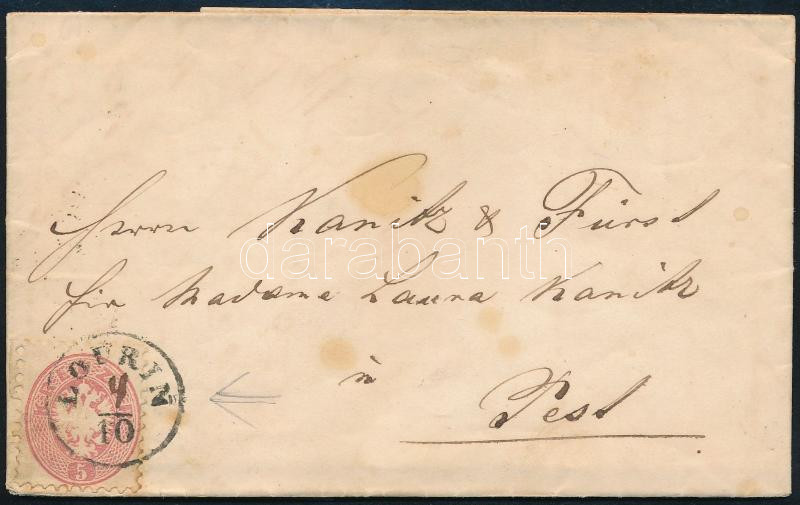 Herrn Kanitz & Fürst
darabanth
für Madame Laura Kanitz
in
Pest
LOVRIN
4
10
5